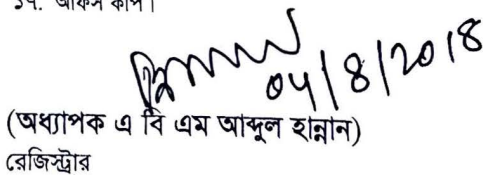 ১৭. অফিস কপি।
04/8/2018
(অধ্যাপক এ বি এম আব্দুল হান্নান)
রেজিস্ট্রার